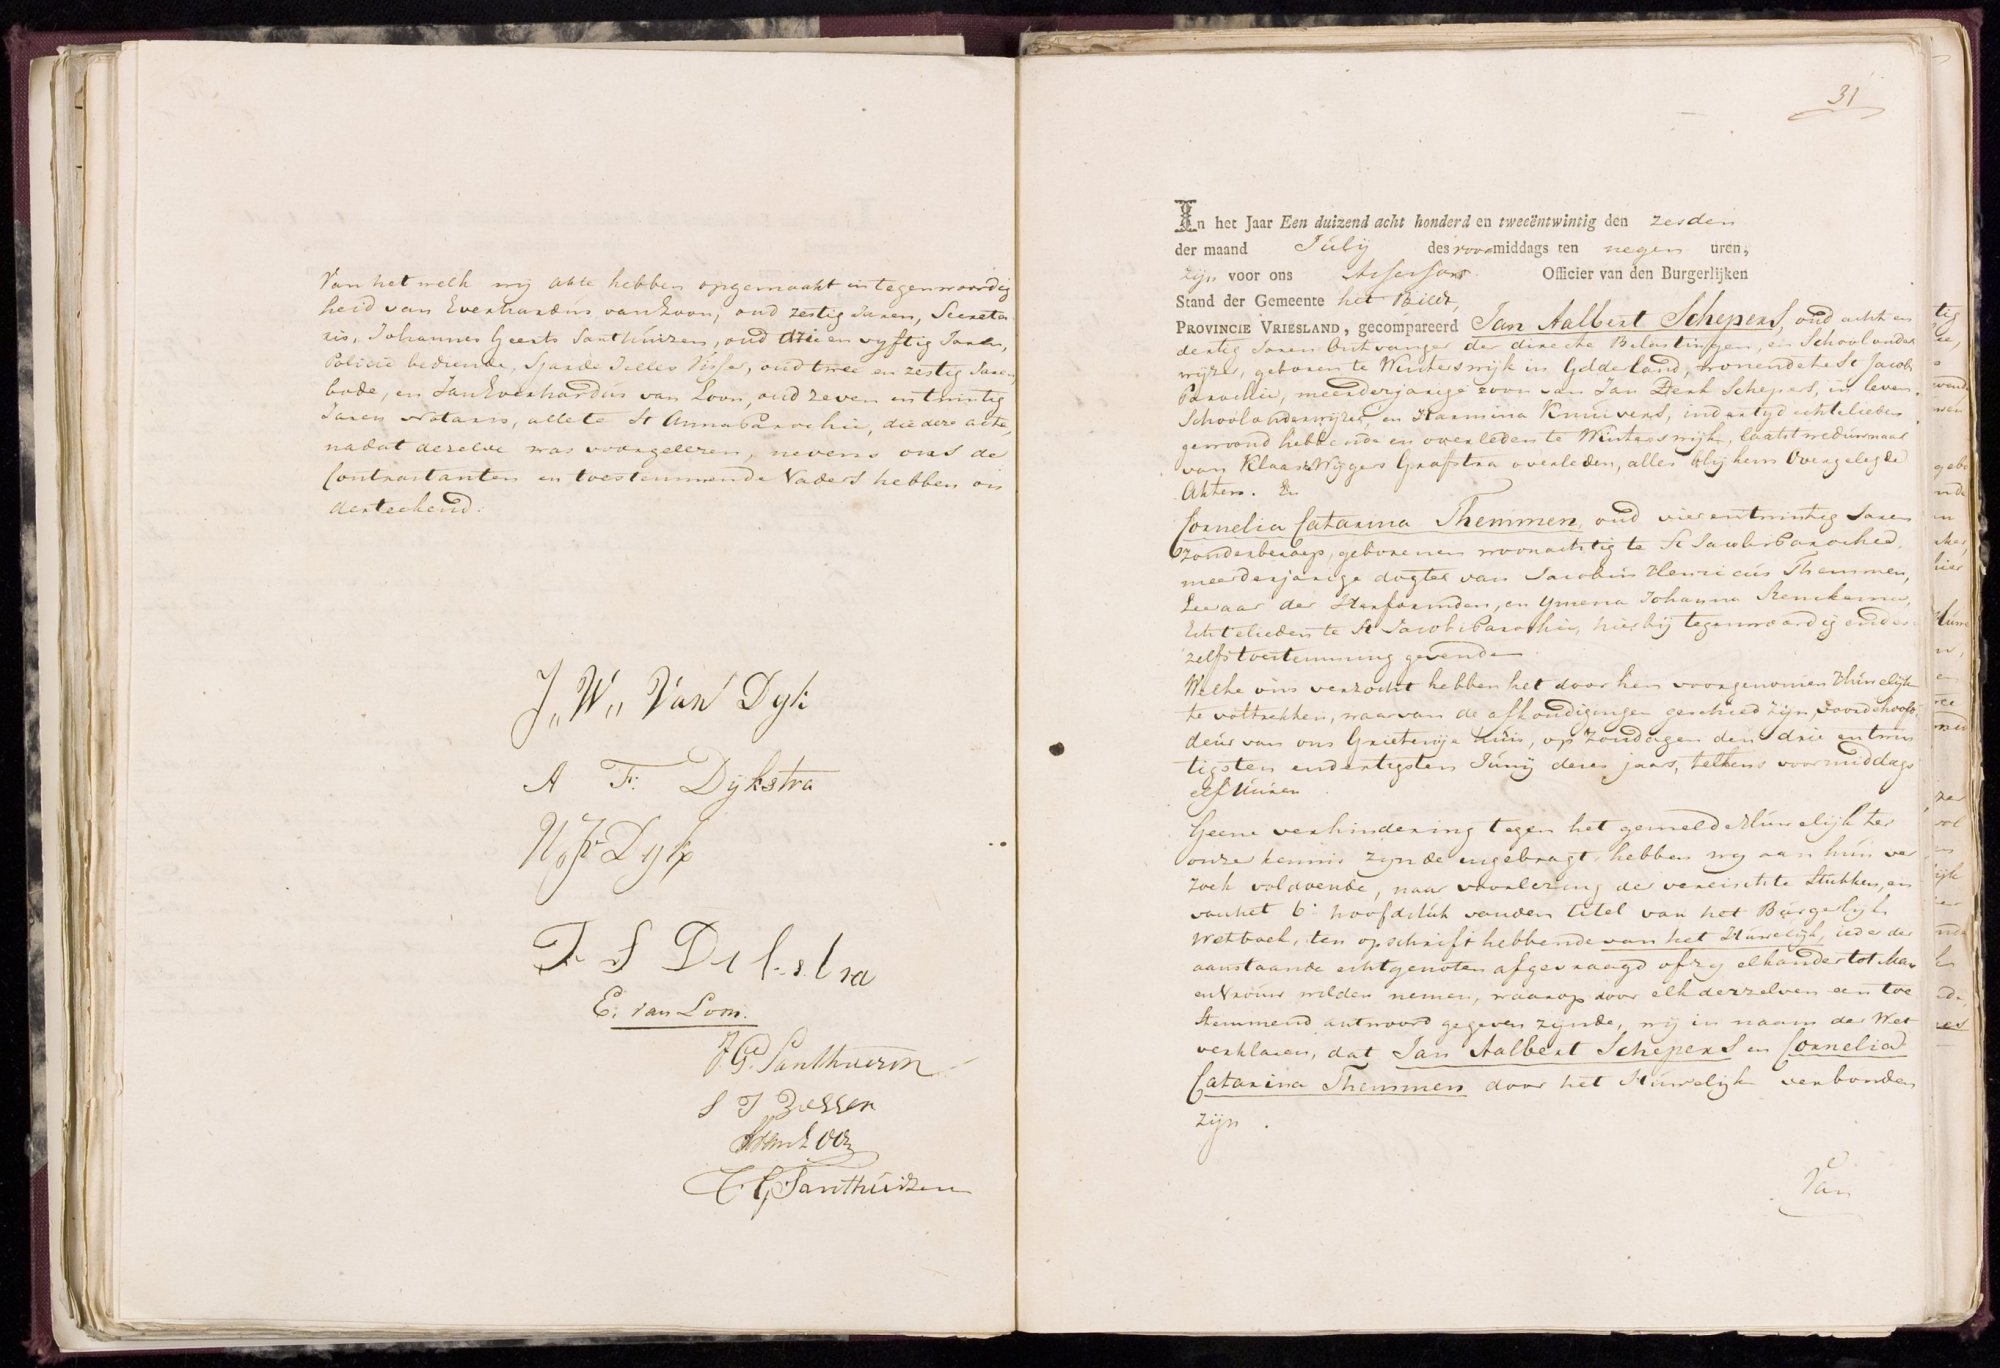 Van het welk wij akte hebben opgemaakt in tegenwoordig
heid van Everhardus van Loon, oud zestig Jaren, Secreta
ris, Johannes Geerts Santhuizen, oud drie en vyftig Jaren,
Policie bediende, Sjoerd Jelles Visser, oud twee en zestig Jaren,
bode, en Jan Everhardus van Loon, oud zeven en twintig
Jaren Notaris, alle te St Anna Parochie, die deze akte,
nadat dezelve was voorgelezen, nevens ons de
Contractanten en toestemmende Vaders hebben on
derteekend.
J,, W,, Van Dyk
A F: Dijkstra
W: F: Dyk
F S Dikstra
E: van Loon.
J. G. Santhuezen
S J Visser
JEvan Loon
C G Santhuizen
31
In het Jaar Een duizend acht honderd en tweeëntwintig den zesden
der maand July des voormiddags ten negen uren,
zijn voor ons Assessor Officier van den Burgerlijken
Stand der Gemeente het Bildt,
PROVINCIE VRIESLAND, gecompareerd Jan Aalbert Schepers, oud acht en
dertig Jaren Ontvanger der directe Belastingen, en Schoolonder
wyzer, geboren te Winterswijk in Gelderland, wonende te St Jacobi
Parochie, meerderjarige zoon van Jan Derk Schepers, in leven
Schoolonderwijzer, en Harmina Knuivers, in der tyd echtelieden
gewoond hebbende en overleden te Winterswijk, laatst weduwnaar
van Klaaske Wijgers Graafstra overleden, alles blijkens Overgelegde
Akten. En
Cornelia Catarina Themmen, oud vier en twintig Jaren
zonder beroep, geboren en woonachtig te St Jacobi Parochie,
meerderjarige dogter van Jacobus Henricus Themmen,
Leeraar der Hervormden, en Ymena Johanna Kenckema,
Echtelieden te St Jacobi Parochie, hierbij tegenwoordig en des
zelfs toestemming gevende
Welke ons verzocht hebben het door hen voorgenomen Huwelijk
te voltrekken, waarvan de afkondigingen geschied zijn voor de hoofd
deur van ons Grietenije huis, op Zondagen den drie en twin
tigsten en dertigsten Juny dezes jaars, telkens voormiddags
elf Uuren
Geene verhindering tegen het gemelde Huwelijk ter
onzer kennis zynde ingebragt, hebben wy aan hun ver
zoek voldoende, naar voorlezing der vereischte Stukken, en
van het 6e hoofdstuk van den titel van het Burgerlijk
Wetboek, ten opschrift hebbende van het Huwelijk, ieder der
aanstaande echtgenoten afgevraagd of zy elkander tot Man
en Vrouw wilden nemen, waarop door elk derzelven een toe
stemmend antwoord gegeven zynde, wy in naam der Wet
verklaren, dat Jan Aalbert Schepers en Cornelia
Catarina Themmen door het Huwelijk verbonden
zijn.
Van